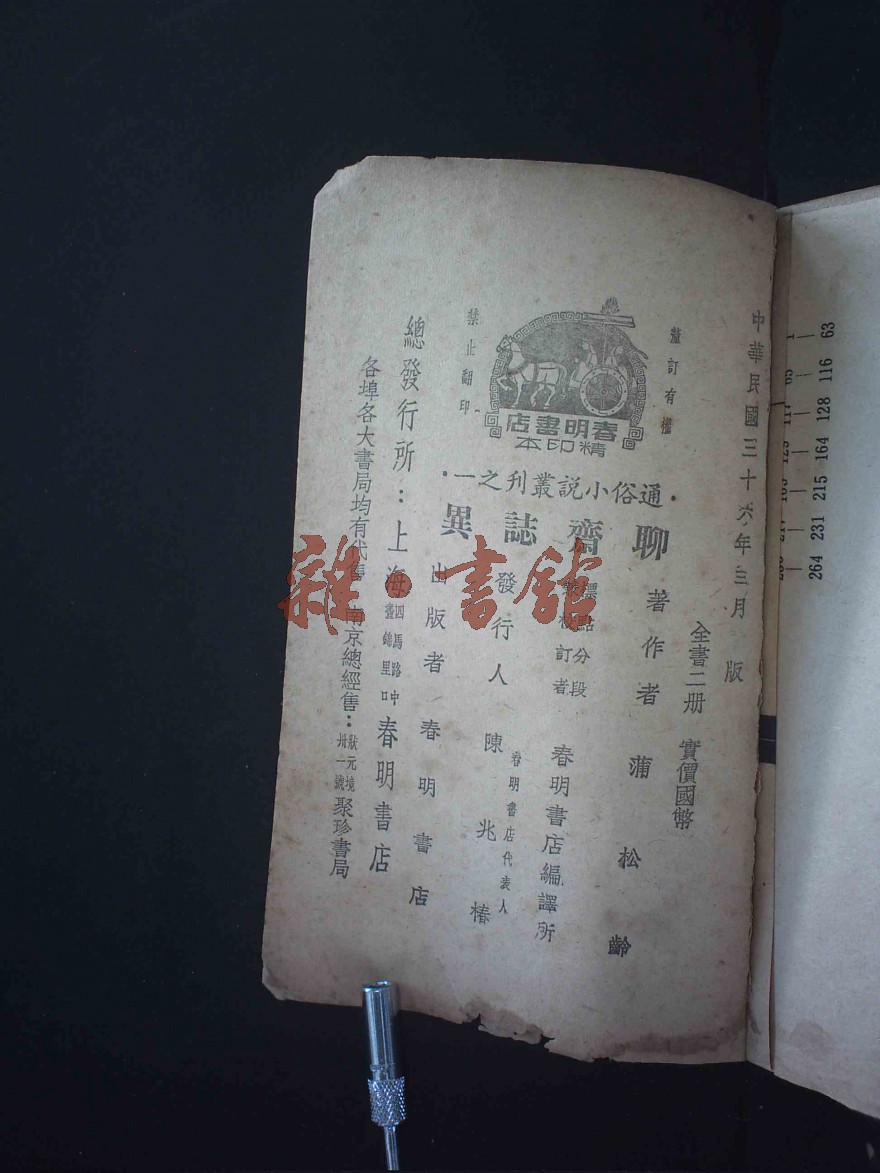 中華民國三十六年三月 版
全書二册 實價國幣
釐訂有權
禁止翻印
春明書店
精印本
·通俗小説叢刊之一·
聊齋誌異
著作者 蒲松齡
標點分段
訂者
春明書店編譯所
發行人 陳兆椿
春明書店代表人
出版者 春明書店
總發行所：上海四馬路中畫錦里口春明書店
各埠各大書局均有代售 南京總經售：狀元境卅一號聚珍書局
雜·書館
1 63
65 116
117 128
129 164
215
231
264